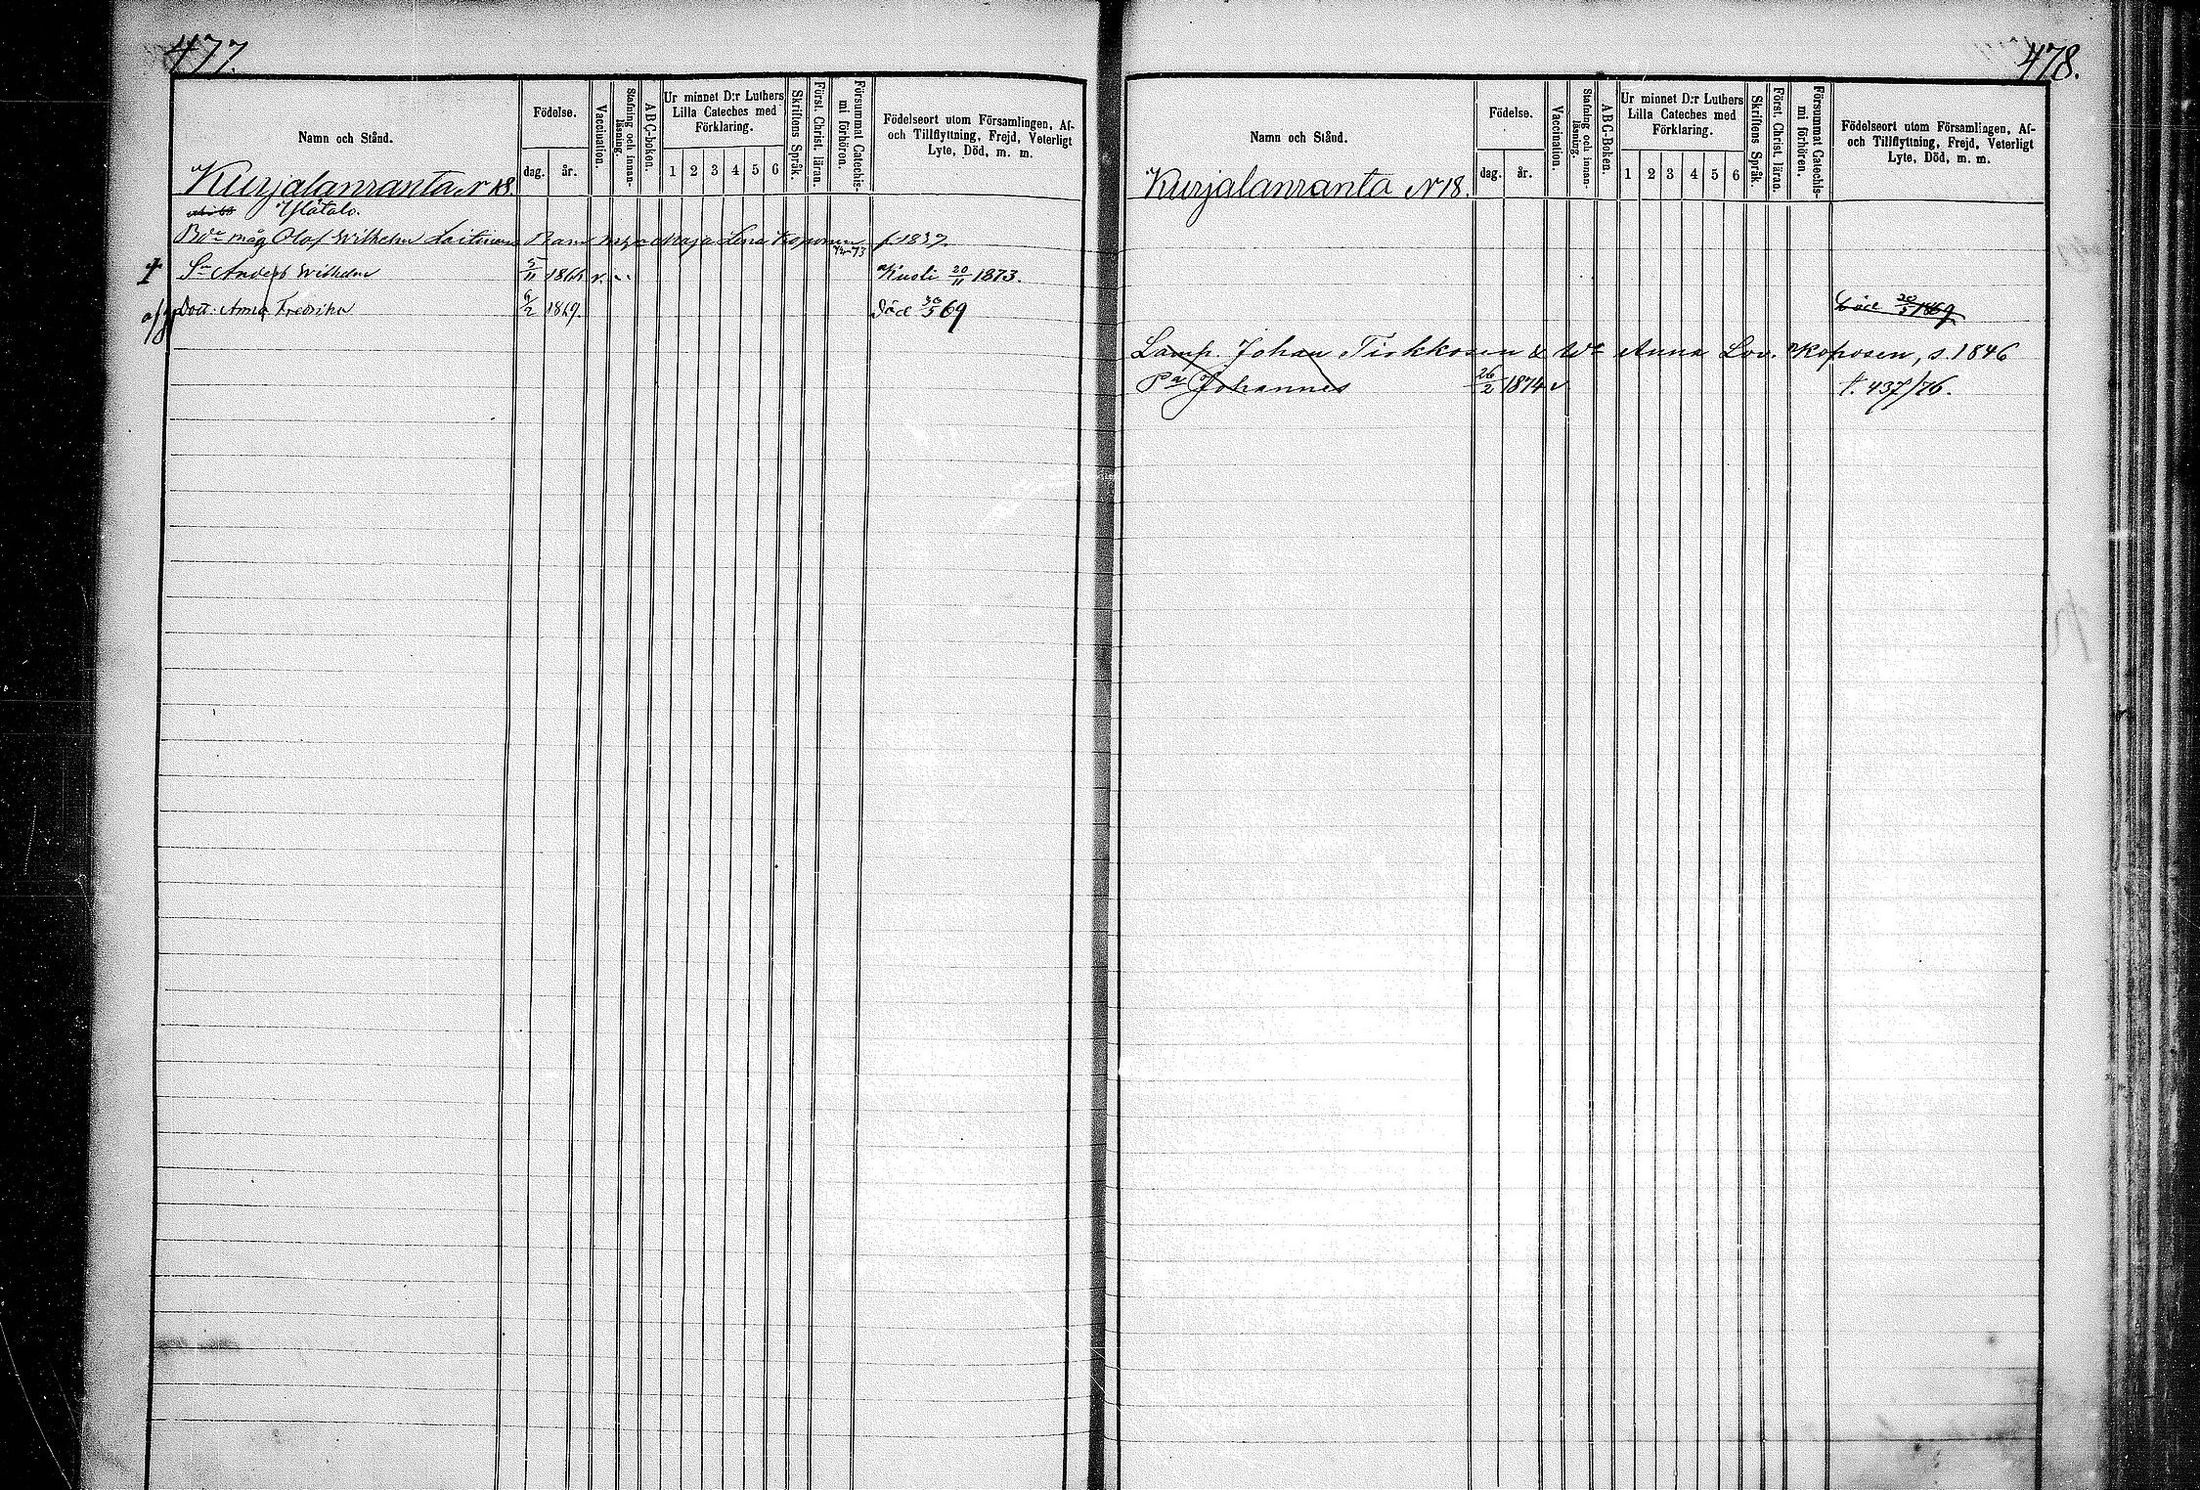 477.
Namn och Stånd.
Födelse.
dag. år.
Vaccination.
Stafning och innan-
läsning.
ABC-boken.
Ur minnet D:r Luthers
Lilla Cateches med
Förklaring.
1 2 3 4 5 6
Skriftens Språk.
Först. Christ. läran.
Försummat Catechis-
mi förhören.
Födelseort utom Församlingen, Af-
och Tillflyttning, Frejd, Veterligt
Lyte, Död, m. m.
Kurjalanranta N 18.
Ylätalo.
Olof Wilhelm Laitinen Maja Lena Koponen f. 1837.
72-73
Sn Anders Wilhelm 5/11 1866 v. Kusli 20/11 1873.
Dott. Anna Fredrika 6/2 1869. Död 30/5 69
478.
Namn och Stånd.
Födelse.
dag. år.
Vaccination.
Stafning och innan-
läsning.
ABC-Boken.
Ur minnet D:r Luthers
Lilla Cateches med
Förklaring.
1 2 3 4 5 6
Skriftens Språk.
Först. Christ. läran.
Försummat Catechis-
mi förhören.
Födelseort utom Församlingen, Af-
och Tillflyttning, Frejd, Veterligt
Lyte, Död, m. m.
Kurjalanranta N 18.
Död 30/5 1869
Lamp. Johan Tirkkosen & Wa Anna Lov. Koposen, s. 1846
Pa Johannes 26/2 1874 v t. 437/76.